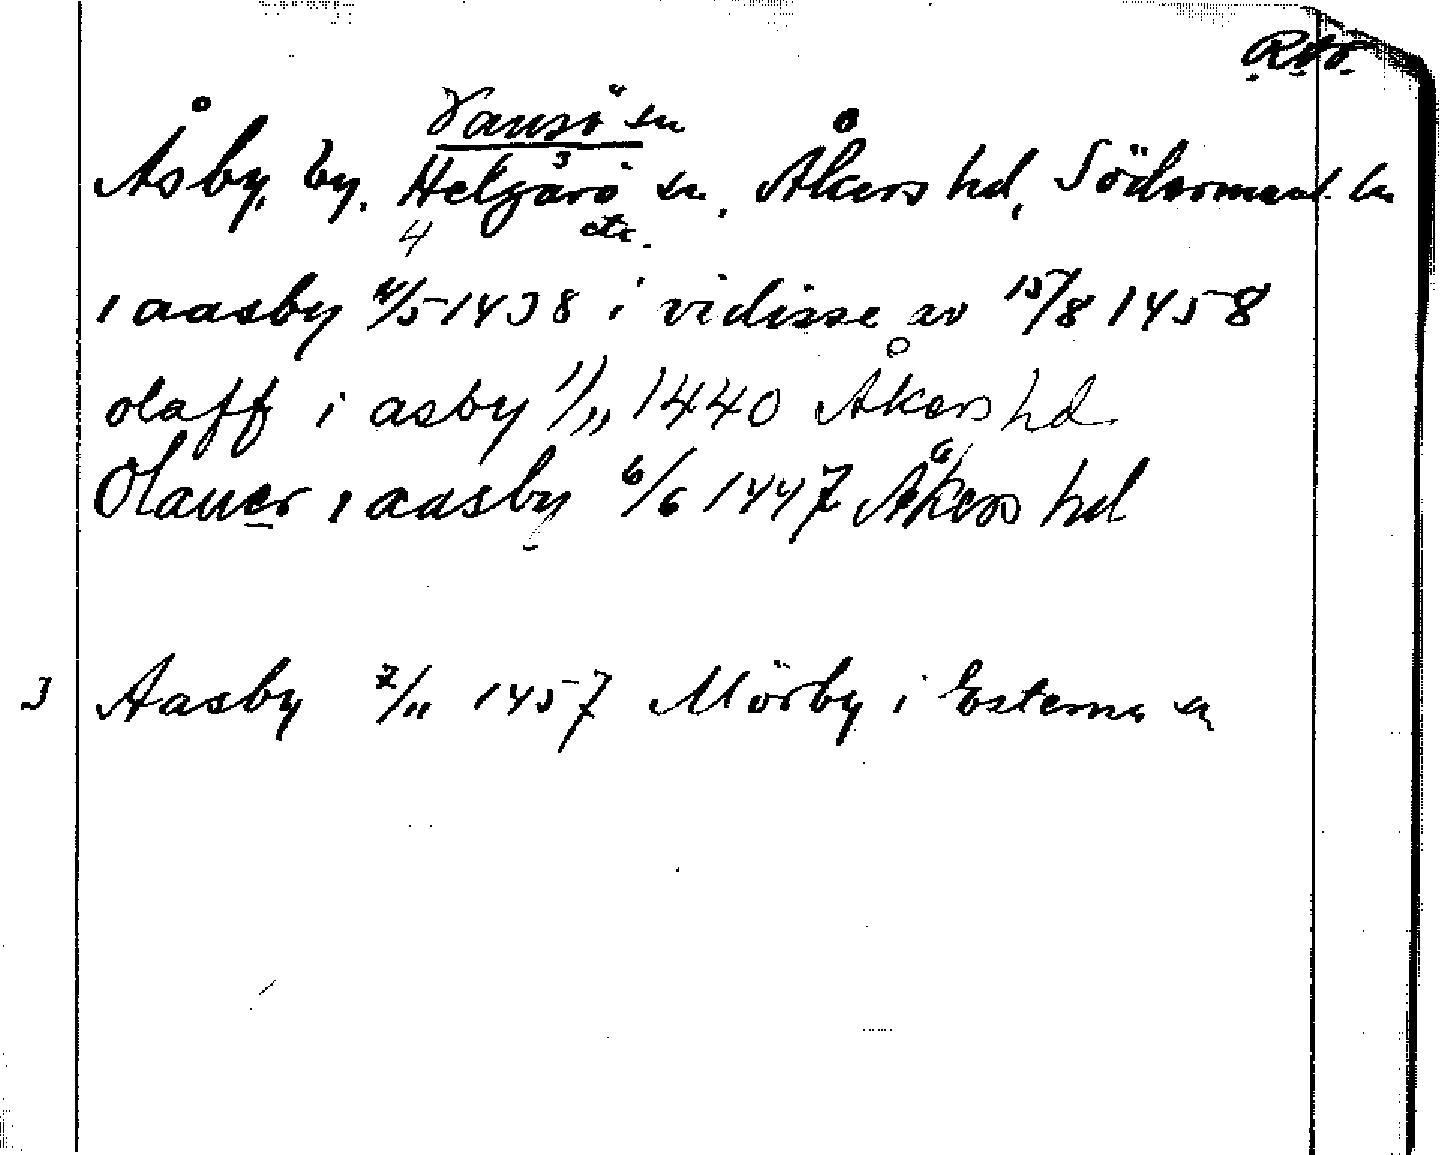 Vansö sn
Åsby, by, Helgarö sn, Åkers hd, Södermanl. ln
3
4
i aasby 4/5 1438 i vidisse av 15/8 1458
olaff i asby 1/11 1440 Åkers hd
Olauer i aasby 6/6 1447 Åkers hd
3 Aasby 7/11 1457 Mörby i Esterna sn